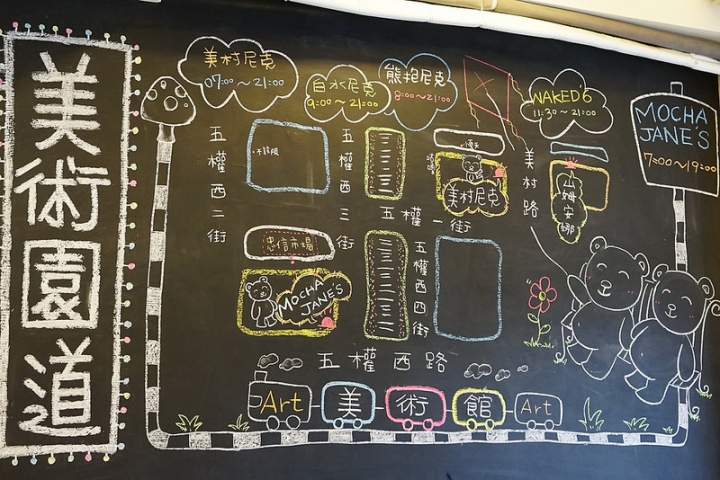 美術園道
美村尼克
07:00~21:00
白水尼克
9:00~21:00
熊抱尼克
8:00~21:00
NAKED'6
11:30~21:00
MOCHA
JANE'S
7:00~19:00
五權西二街
五權西三街
五權一街
美村路
美村尼克
山姆安娜
忠信市場
MOCHA
JANE'S
五權西四街
五權西路
Art 美 術 館 Art